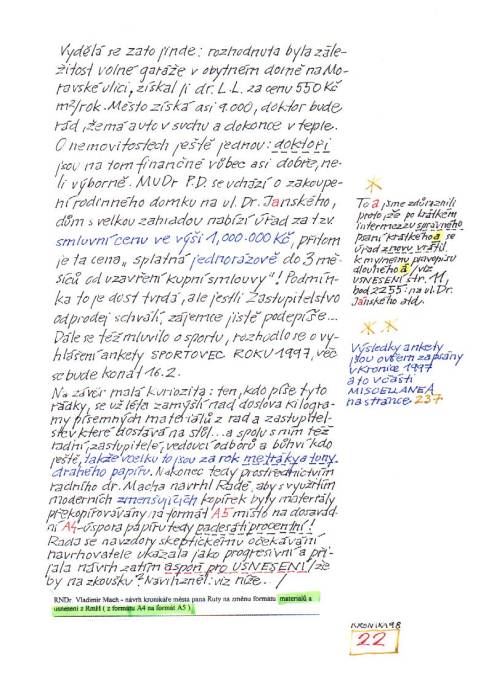 Vydělá se zato jinde: rozhodnuta byla zále-
žitost volné garáže v obytném domě na Mo-
ravské ulici, získal ji dr. L.L. za cenu 550 Kč
m2/rok. Město získá asi 9.000, doktor bude
rád, že má auto v suchu a dokonce v teple.
O nemovitostech ještě jednou: doktoři
jsou na tom finančně vůbec asi dobře, ne-
li výborně. MUDr P.D. se uchází o zakoupe-
ní rodinného domku na ul. Dr. Janského,
dům s velkou zahradou nabízí úřad za tzv.
smluvní cenu ve výši 1,000.000 Kč, přitom
je ta cena „splatná jednorázově do 3 mě-
síců od uzavření kupní smlouvy"! Podmín-
ka to je dost tvrdá, ale jestli Zastupitelstvo
odprodej schválí, zájemce jistě podepíše...
Dále se též mluvilo o sportu, rozhodlo se o vy-
hlášení ankety SPORTOVEC ROKU 1997, věc
se bude konat 16.2.
Na závěr malá kuriozita: ten, kdo píše tyto
řádky, se už léta zamýšlí nad doslova kilogra-
my písemných materiálů z rad a zastupitel-
stev které dostává na stůl...a spolu s ním též
radní, zastupitelé, vedoucí odborů a bůhví kdo
ještě, takže vcelku to jsou za rok metráky a tony
drahého papíru. Nakonec tedy prostřednictvím
radního dr. Macha navrhl Radě, aby s využitím
moderních zmenšujících kopírek byly materiály
překopírovávány na formát A5 místo na dosavad-
ní A4-úspora papíru tedy padesátiprocentní!
Rada se navzdory skeptickému očekávání
navrhovatele ukázala jako progresivní a při-
jala návrh zatím aspoň pro USNESENÍ /že
by na zkoušku? Navíc níže...
RNDr. Vladimír Mach - návrh kronikáře města pana Ruty na změnu formátu materiálů a
usnesení z RmH ( z formátu A4 na formát A5 )
To a jsme zdůraznili
proto, že po krátkém
intermezzu správného
psaní krátkého a se
úřad znovu vrátil
k mylnému pravopisu
dlouhého á / viz
USNESENÍ str. 11,
bod 2255: na ul. Dr.
Jánského atd.
Výsledky ankety
jsou ovšem zapsány
v Kronice 1997
a to v části
MISCELLANEA
na straně 237
KRONIKA 98
22